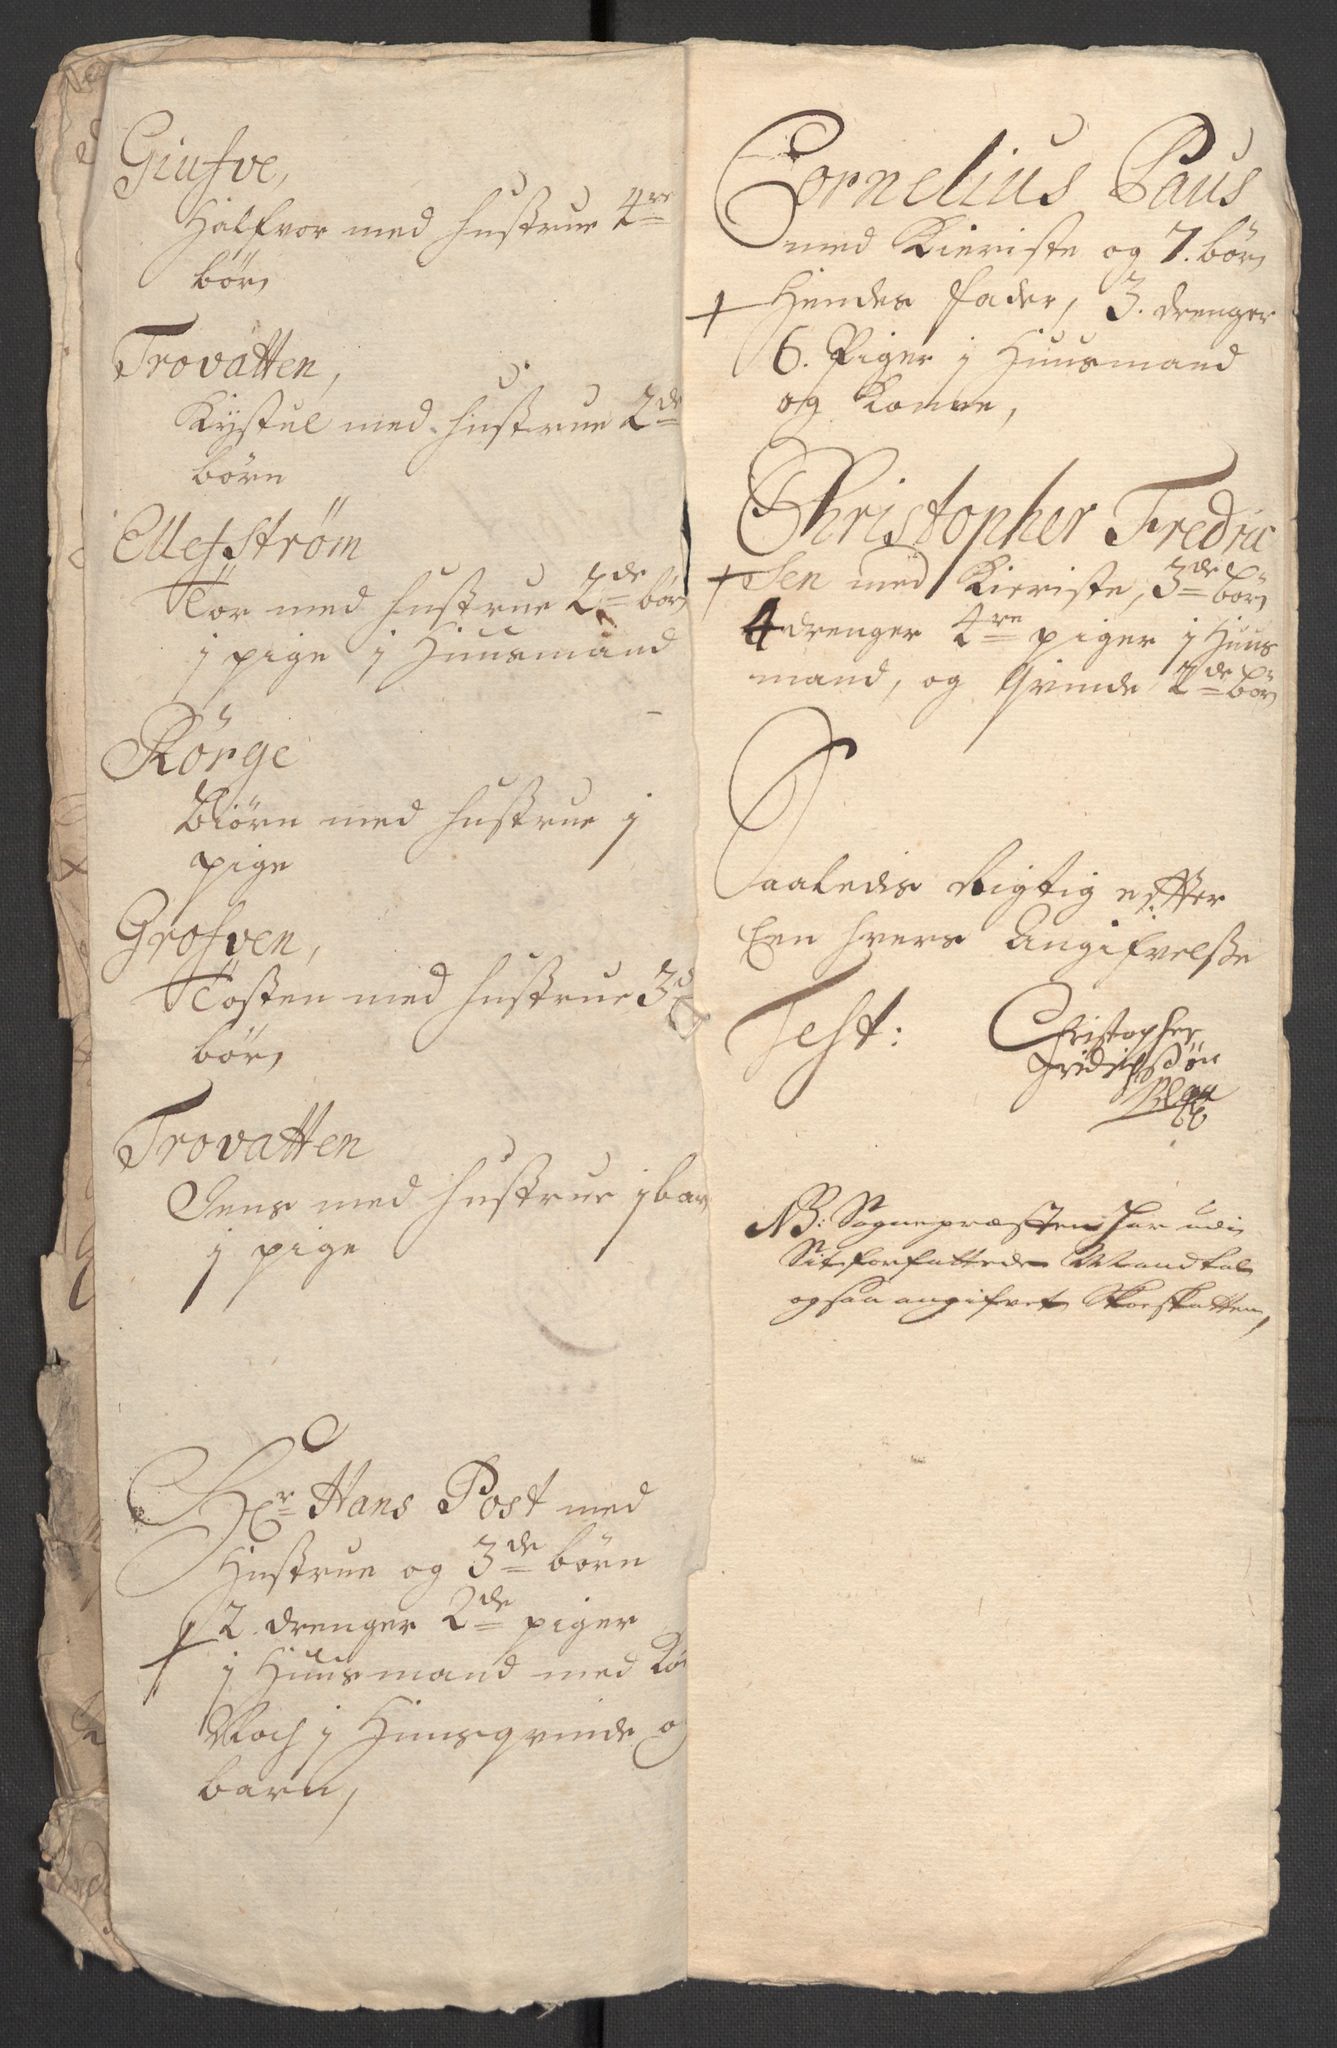 Giufve,
Halfvor med hustrue 4re
börn
Trovatten,
Kystul med hustrue 2de
börn
Ellefström
Tor med hustrue 2de börn
j pige j Huusmand
Rörge
Biörn med hustrue j
pige
Grofven,
Tosten med hustrue 3de
börn
Trovatten
Jens med hustrue j barn
j pige
Hr Hans Post med
Hustrue og 3de börn
2. drenger 2de piger
j Huusmand med
Noch j Huusqvinde og
barn,
Cornelius Paus
med Kieriste og 7. börn
Hendes fader, 3. drenger
6. Piger j Huusmand
og Konne,
Christopher Fredric
sen med Kieriste, 3de börn
4 drenger 4re piger j Huus
mand, og Qvinde 2de börn
Saaledis Rigtig effter
Een hvers Angifvelsse
Test: Christopher
Fridrichsön
NB: Sognepræsten har udi
Sit forfattede Mandtal
ogsaa angifvet Skoeskatten,